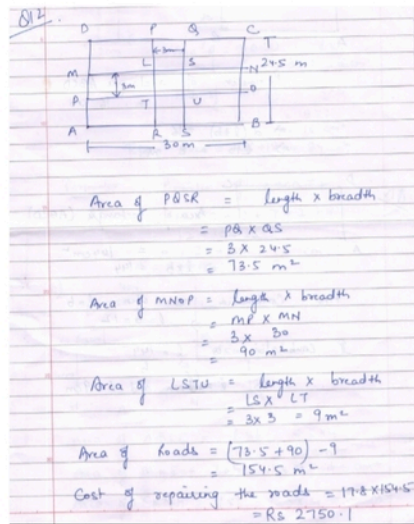 Q12.
D P Q C
T
3m
M L S N 24.5 m
3m
P T U O
A R S B
30 m
Area of PQSR = length x breadth
= PQ x QS
= 3 x 24.5
= 73.5 m²
Area of MNOP = length x breadth
= MP x MN
= 3 x 30
= 90 m²
Area of LSTU = length x breadth
= LS x LT
= 3x3 = 9m²
Area of Roads = (73.5 + 90) - 9
= 154.5 m²
Cost of repairing the roads = 17.8 x 154.5
= Rs 2750.1